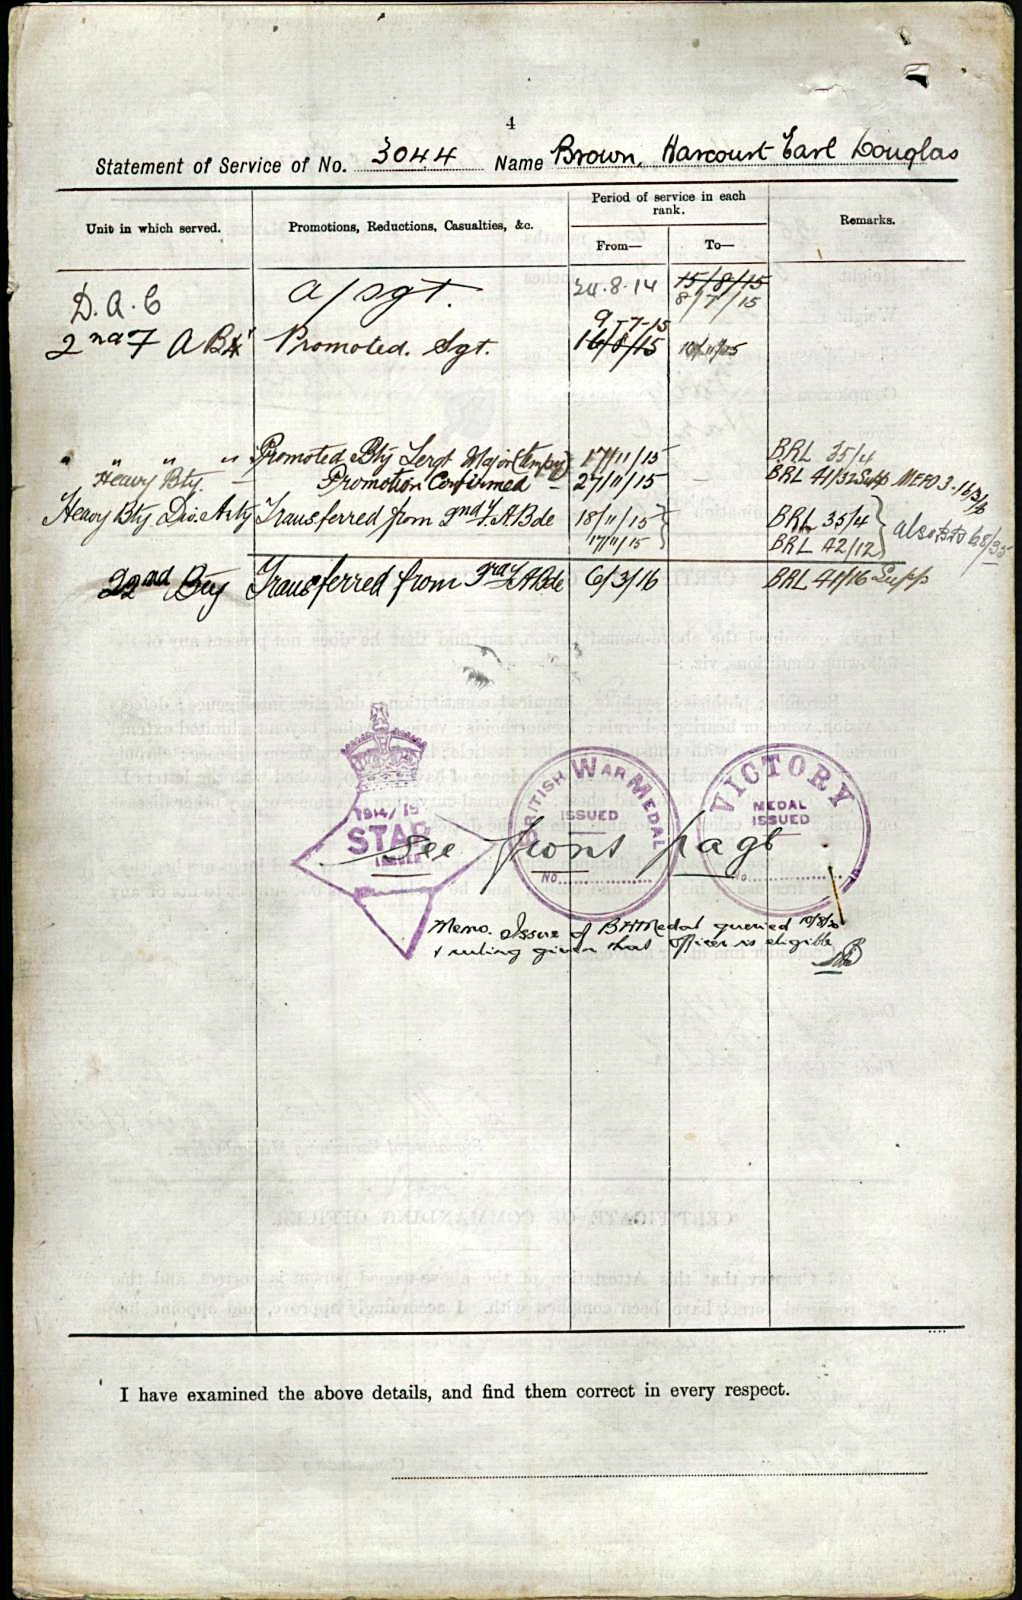 4
Statement of Service of No. 3044 Name Brown, Harcourt Earl Douglas
Unit in which served.
Promotions, Reductions, Casualties, &c.
Period of service in each rank.
From—
To—
Remarks.
D. A. C a/sgt. 24.8.14 15/8/15
8/7/15
9-7-15
2nd F A B Promoted. Sgt. 16/8/15
" " " " Promoted Bty Sergt Major (Tempy) 17/11/15 BRL 35/4
Heavy Bty. — Promotion Confirmed — 27/11/15 — BRL 41/32 Supp MEFO 3-
Heavy Bty Div. Arty Transferred from 2nd F.A.Bde 18/11/15 BRL 35/4 also
17/11/15 BRL 42/12
22nd Bty Transferred from 3rd F.A.Bde 6/3/16 BRL 41/16 Supp
1914/15
STAR
ISSUED
BRITISH WAR MEDAL
ISSUED
No.
VICTORY
MEDAL
ISSUED
No.
See front page
Memo. Issue of B W Medal queried 10/8/20
& ruling given that officer is eligible
I have examined the above details, and find them correct in every respect.